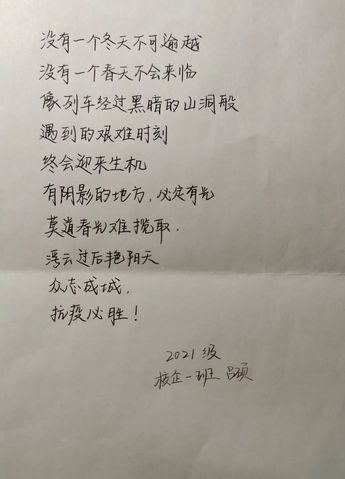 没有一个冬天不可逾越
没有一个春天不会来临
像列车经过黑暗的山洞般
遇到的艰难时刻
终会迎来生机
有阴影的地方，必定有光
莫道春光难揽取．
浮云过后艳阳天
众志成城，
抗疫必胜！
2021级
核企一班 吕硕